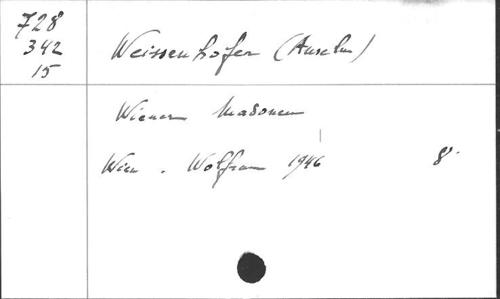 728
342
15
Weissenhofer (Anselm)
Wiener Madonnen
Wien. Wolfrum 1946 8°